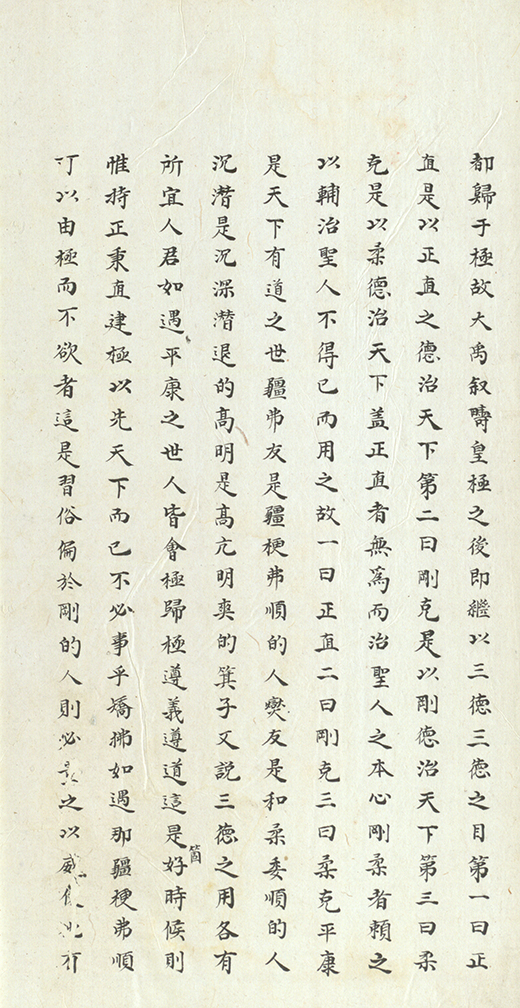 都歸于極故大禹叙疇皇極之後即繼以三徳三徳之目第一曰正
直是以正直之德治天下第二曰剛克是以剛德治天下第三曰柔
克是以柔德治天下盖正直者無為而治聖人之本心剛柔者頼之
以輔治聖人不得已而用之故一曰正直二曰剛克三曰柔克平康
是天下有道之世疆弗友是疆梗弗順的人燮友是和柔委順的人
沉潛是沉深潛退的高明是高亢明爽的箕子又説三德之用各有
所宜人君如遇平康之世人皆會極歸極遵義遵道這是好箇時候則
惟持正秉直建極以先天下而已不必事乎矯拂如遇那疆梗弗順
可以由極而不欲者這是習俗偏於剛的人則必之以威